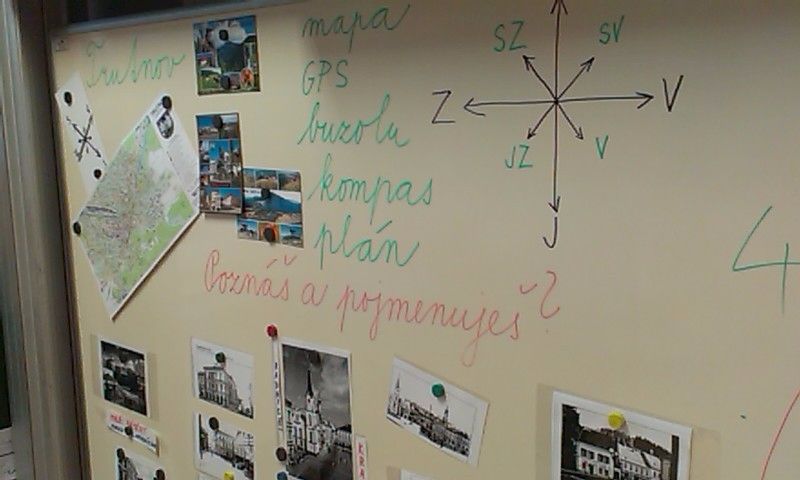 Trutnov
mapa
GPS
buzolu
kompas
plán
SZ
SV
Z
V
JZ
V
J
Poznáš a pojmenuješ?
4